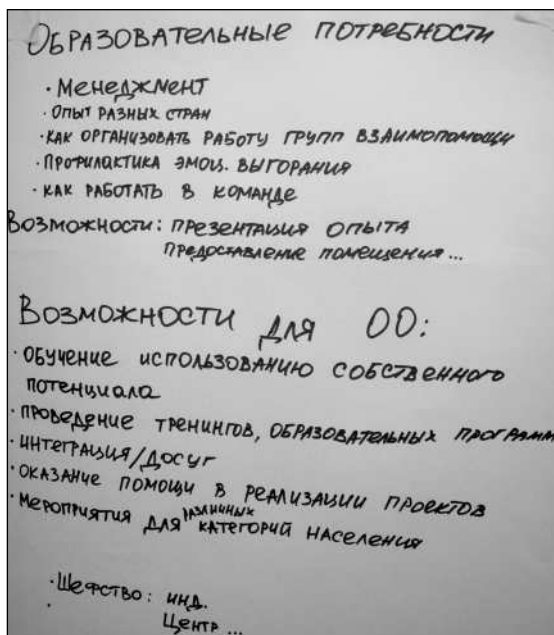 Образовательные потребности
· Менеджмент
· опыт разных стран
· как организовать работу групп взаимопомощи
· Профилактика эмоц. выгорания
· как работать в команде
Возможности: презентация опыта
предоставление помещения ...
Возможности для ОО:
· обучение использованию собственного
потенциала
· проведение тренингов, образовательных программ
· интеграция/досуг
· оказание помощи в реализации проектов
· мероприятия для различных категорий населения
· Шефство: инд.
· Центр ...